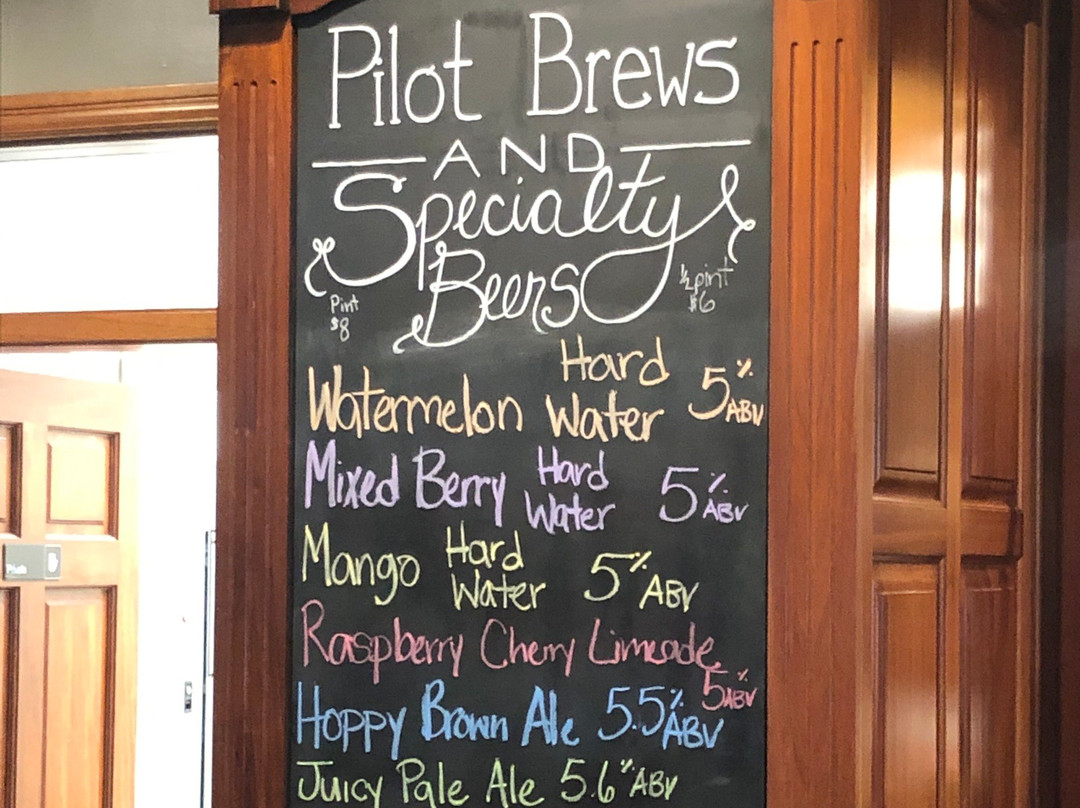 Pilot Brews
AND
Specialty
Beers
Pint
$8
1/2 pint
$6
Watermelon Hard Water 5% ABV
Mixed Berry Hard Water 5% ABV
Mango Hard Water 5% ABV
Raspberry Cherry Limeade
5% ABV
Hoppy Brown Ale 5.5% ABV
Juicy Pale Ale 5.6% ABV